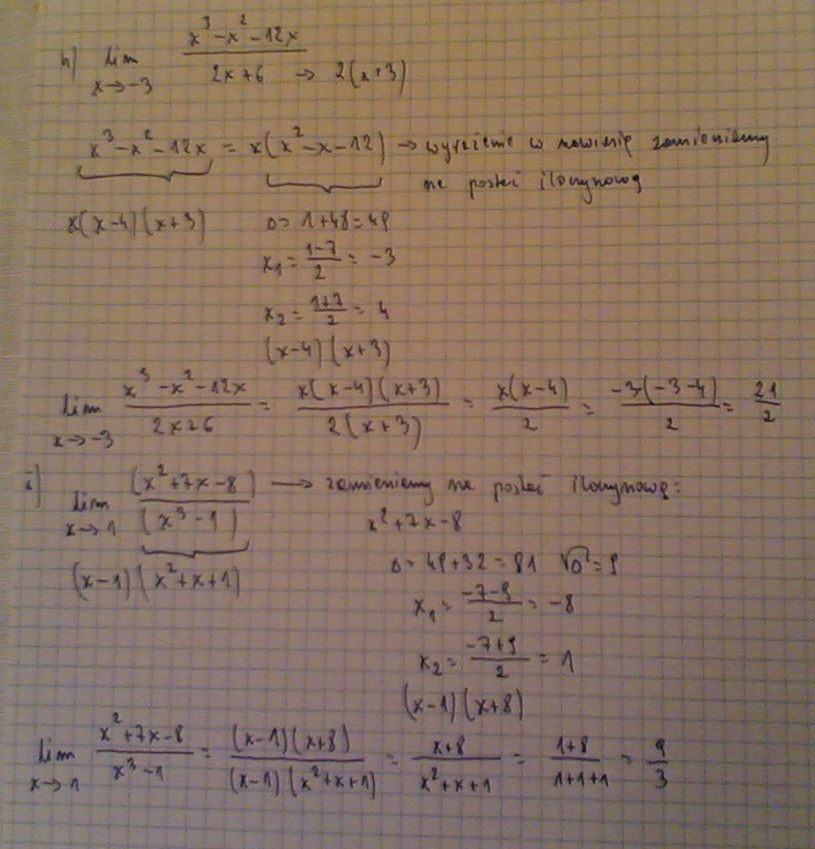 h) lim x→-3 (x³-x²-12x)/(2x+6) → 2(x+3)
x³-x²-12x = x(x²-x-12) → wyrażenie w nawiasie zamieniamy
na postać iloczynową
x(x-4)(x+3) Δ= 1+48=49
x₁= (1-7)/2 = -3
x₂= (1+7)/2 = 4
(x-4)(x+3)
lim x→-3 (x³-x²-12x)/(2x+6) = x(x-4)(x+3)/2(x+3) = x(x-4)/2 = -3(-3-4)/2 = 21/2
i) lim x→1 (x²+7x-8)/(x³-1) → zamieniamy na postać iloczynową:
x²+7x-8
(x-1)(x²+x+1) Δ= 49+32=81 √Δ=9
x₁= (-7-9)/2 = -8
x₂= (-7+9)/2 = 1
(x-1)(x+8)
lim x→1 (x²+7x-8)/(x³-1) = (x-1)(x+8)/(x-1)(x²+x+1) = (x+8)/(x²+x+1) = (1+8)/(1+1+1) = 9/3